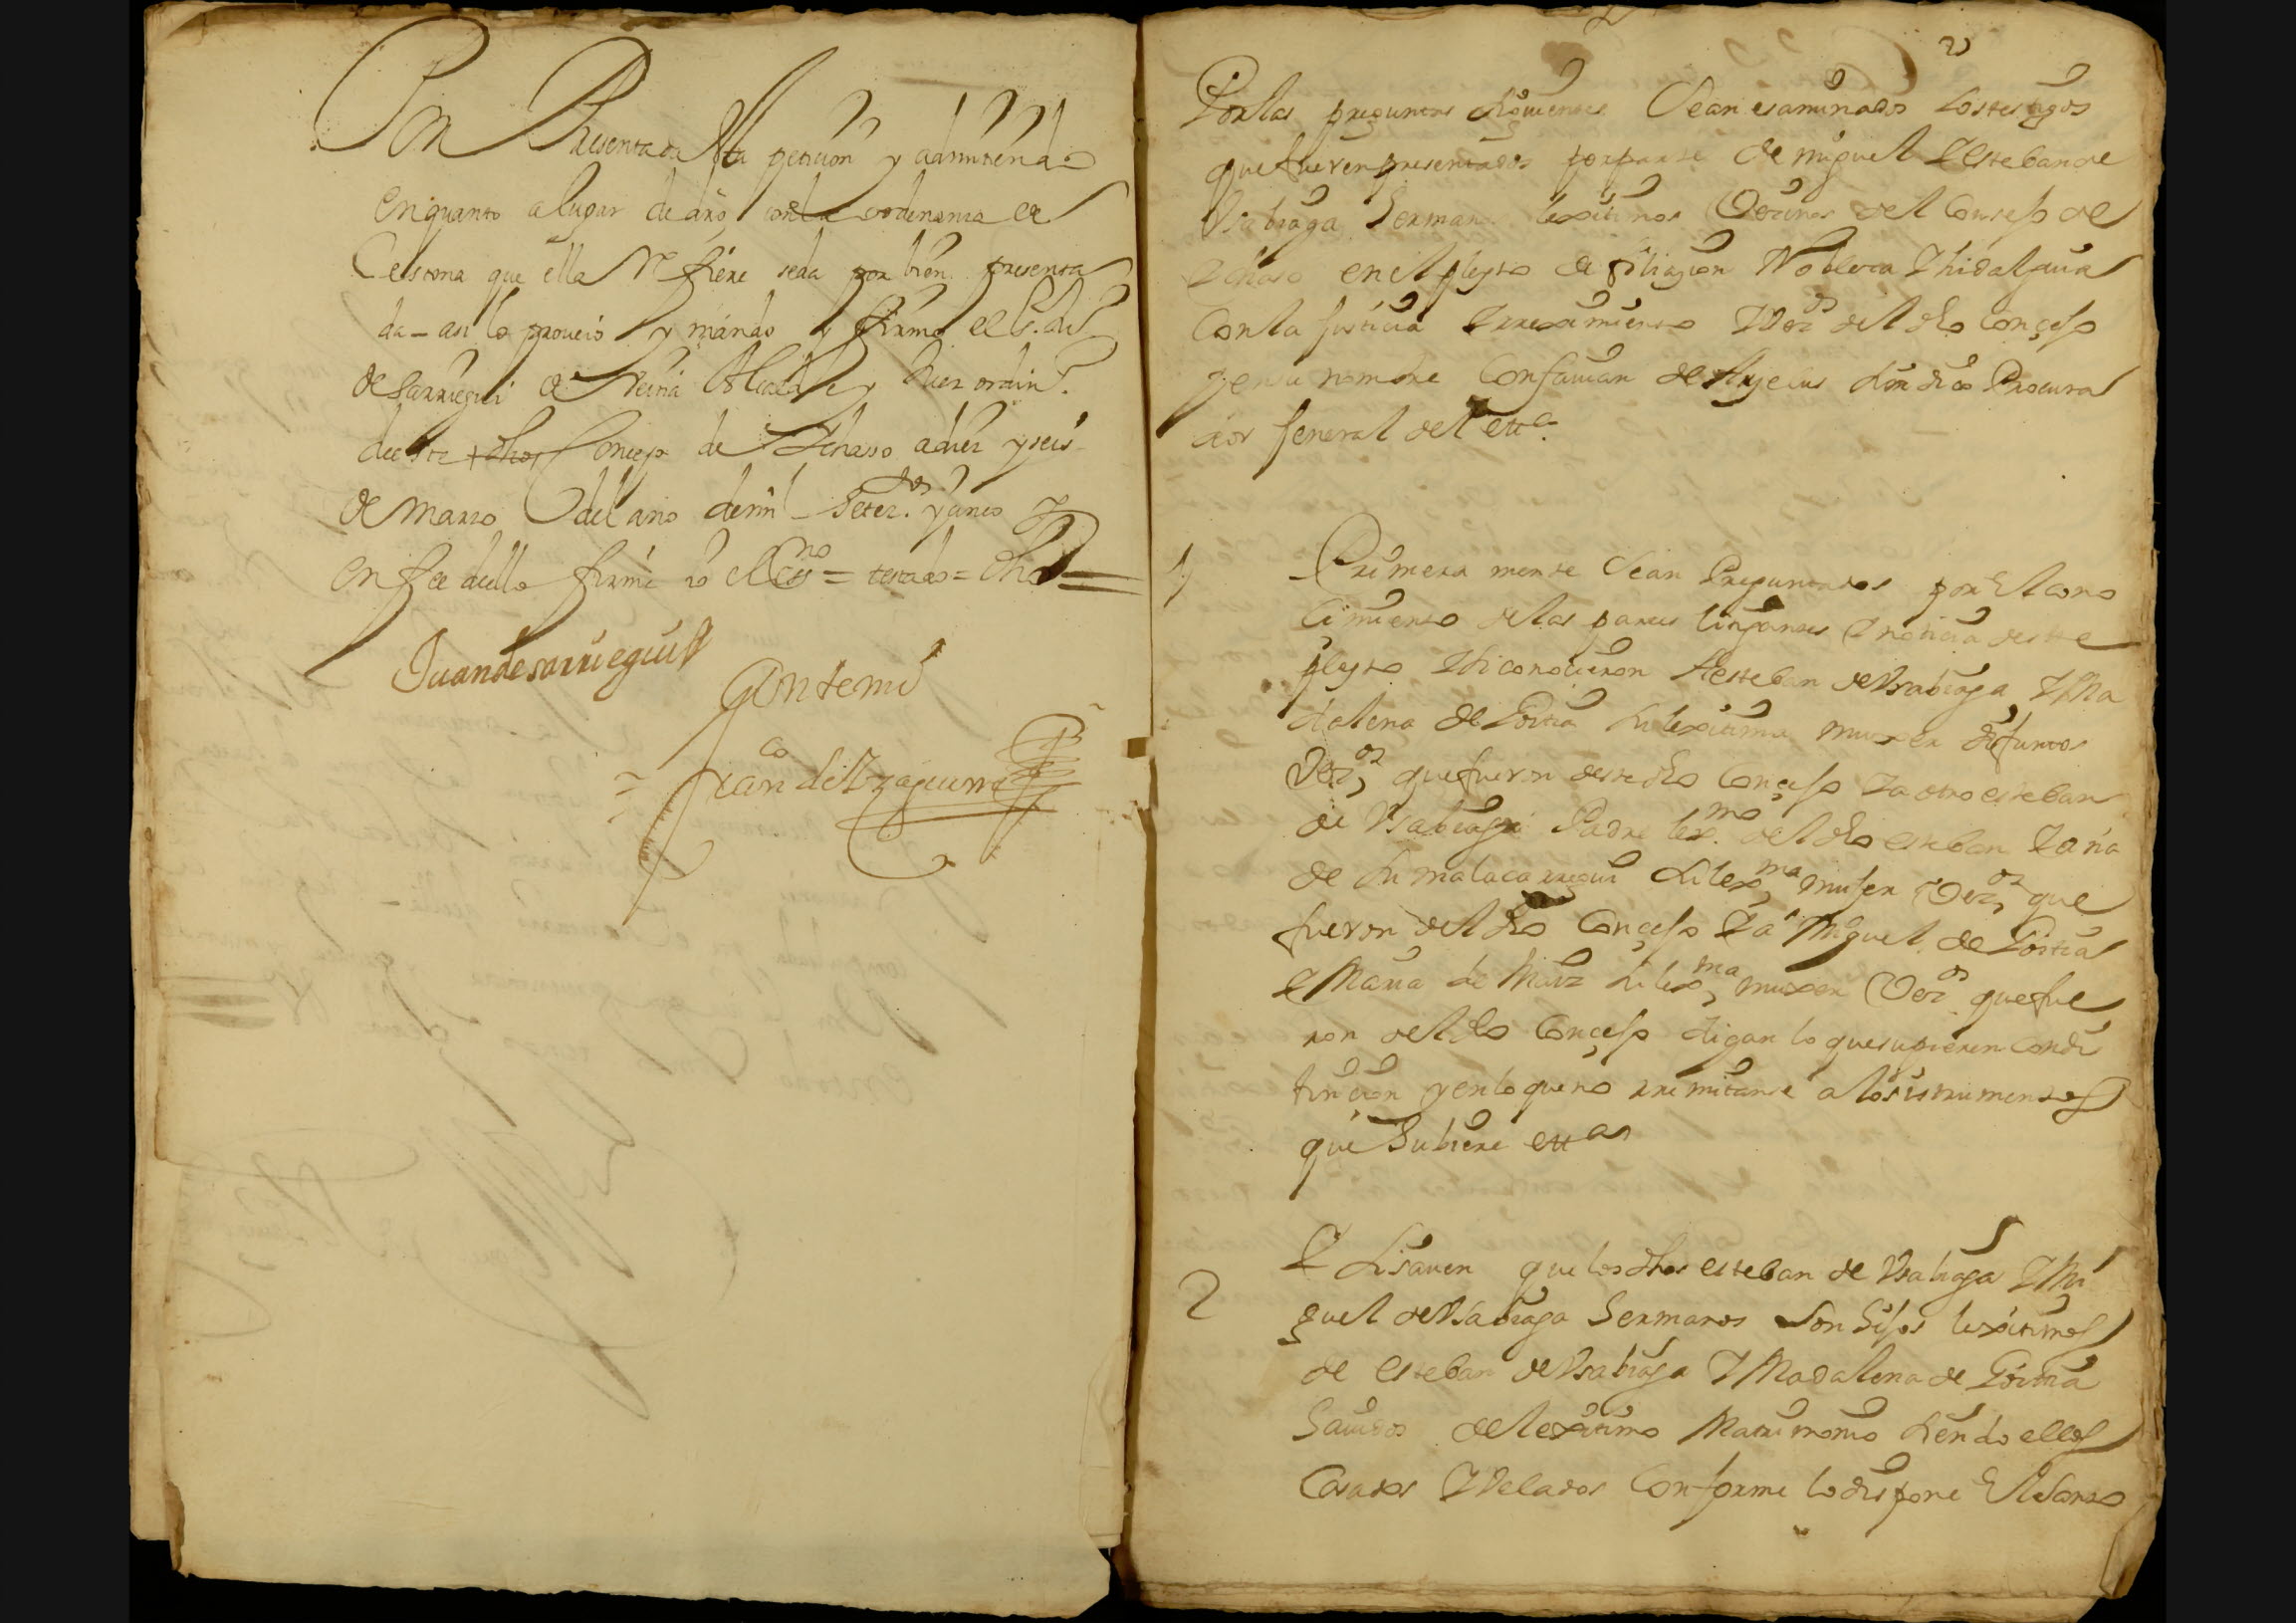 Por Presentada esta peticion y admitenda
en quanto a lugar de dro, con la ordenanza de
Cestona que ella refiere seda por bien presenta
da – asi lo proveio y mando y firmo el Lz.do
de Sarriegui Alcalde y Juez ordin.º
de este dhos Concejo de Ichasso a diez y seis
de Marzo del año de mil – setez.tos y cinco y
en fee de ello firmé yo el Ess.no = testado = dhos
Juan de Sarriegui
Ante mi
Fran.co de Yzaguirre
2
Por las preguntas siguientes Sean esaminados los testigos
que fueren presentados por parte de miguel y esteban de
Vsabiaga Hermanos lexitimos Vecinos del Consejo de
Ichaso en el pleyto de filiaçion Nobleca Y hidalguia
Con la Justicia Y rreximiento Y Vez.os del dho Conçejo
y en su nombre Con Juan de Sindico Procura
dor General del ett.a
1 Primera mente Sean Preguntados por El cono
Cimiento de las partes litigantes Y noticia deste
pleyto Y si conocieron A esteban de Vsabiaga Y Ma
dalena de Su lexitima muxer difuntos
Vez.os que fueron deste dho Conçejo Y a otro esteban
de Vsabiaga Padre lex.mo del dho esteban Y a
de Sumalacarregui Su lex.ma mujer Vez.os que
fueron del dho Conçejo Y a Miguel de
Y Maria de Su lex.ma muxer Vez.os que fue
ron del dho Conçejo digan lo que supieren Con di
tinçion y en lo que no rremitanse a los istrumentos
que Hubiere ett.as
2 Y Si saven que los dhos esteban de Vsabiaga Y Mi
guel de Vsabiaga Hermanos Son Hijos lexitimos
de esteban de Vsabiaga Y Madalena de
Havidos de lexitimo Matrimonio Siendo ellos
Casados Y Velados Conforme lo dispone El Santo